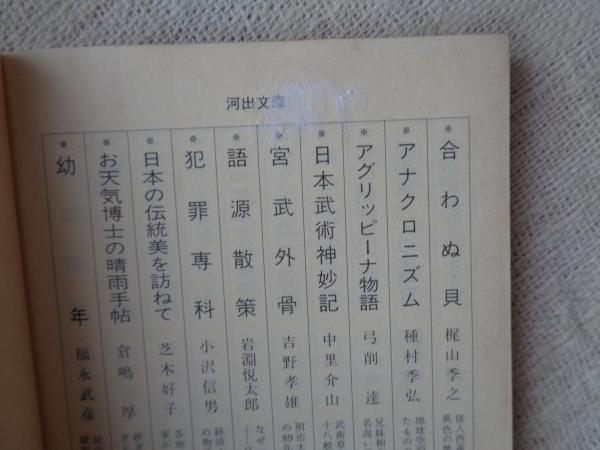 河出文庫
※合わぬ貝 梶山季之
※アナクロニズム 種村季弘
※アグリッピーナ物語 弓削 達
※日本武術神妙記 中里介山
※宮武外骨 吉野孝雄
※語源散策 岩淵悦太郎
※犯罪専科 小沢信男
※日本の伝統美を訪ねて 芝木好子
※お天気博士の晴雨手帖 倉嶋 厚
※幼年 福永武彦